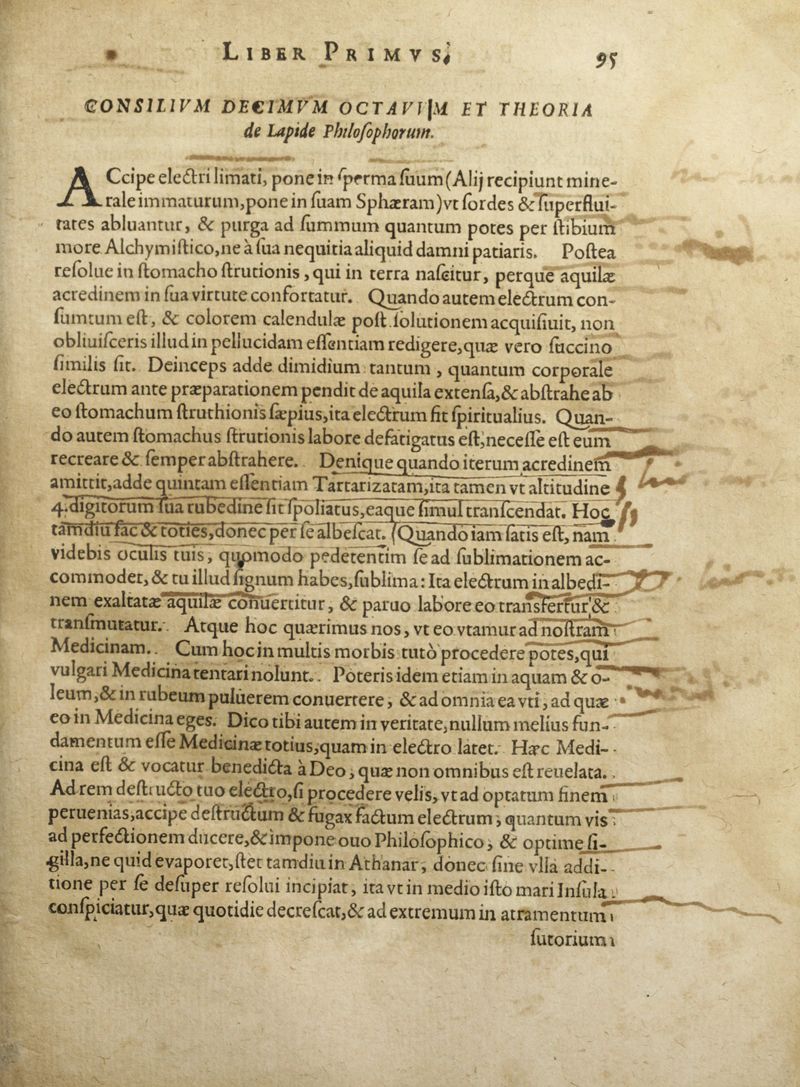 LIBER PRIMVS.
95
CONSILIVM DECIMVM OCTAVIJM ET THEORIA
de Lapide Philosophorum.
ACcipe electri limati, pone in sperma suum (Alij recipiunt mine-
rale immaturum, pone in suam Sphæram) vt sordes & superflui-
tates abluantur, & purga ad summum quantum potes per stibium
more Alchymistico, ne à sua nequitia aliquid damni patiaris. Postea
resolue in stomacho strutionis, qui in terra nascitur, perque aquilæ
acredinem in sua virtute confortatur. Quando autem electrum con-
sumtum est, & colorem calendulæ post solutionem acquisiuit, non
obliuisceris illud in pellucidam essentiam redigere, quæ vero succino
similis sit. Deinceps adde dimidium tantum, quantum corporale
electrum ante præparationem pendit de aquila extensa, & abstrahe ab
eo stomachum struthionis sæpius, ita electrum fit spiritualius. Quan-
do autem stomachus strutionis labore defatigatus est, necesse est eum
recreare & semper abstrahere. Denique quando iterum acredinem
amittit, adde quintam essentiam Tartarizatam, ita tamen vt altitudine
4. digitorum sua rubedine sit spoliatus, eaque simul transcendat. Hoc
tamdiu fac & toties, donec per se albescat. (Quando iam satis est, nam
videbis oculis tuis, quomodo pedetentim se ad sublimationem ac-
commodet, & tu illud signum habes, sublima: Ita electrum in albedi-
nem exaltatæ aquilæ conuertitur, & paruo labore eo transfertur &
transmutatur. Atque hoc quærimus nos, vt eo vtamur ad nostram
Medicinam. Cum hoc in multis morbis tutò procedere potes, qui
vulgari Medicina tentari nolunt. Poteris idem etiam in aquam & o-
leum, & in rubeum puluerem conuertere, & ad omnia ea vti, ad quæ
eo in Medicina eges. Dico tibi autem in veritate, nullum melius fun-
damentum esse Medicinæ totius, quam in electro latet. Hæc Medi-
cina est & vocatur benedicta à Deo, quæ non omnibus est reuelata.
Ad rem destructo tuo electro, si procedere velis, vt ad optatum finem
peruenias, accipe destructum & fugax factum electrum, quantum vis
ad perfectionem ducere, & impone ouo Philosophico, & optime si-
gilla, ne quid evaporet, stet tamdiu in Athanar, donec sine vlla addi-
tione per se desuper resolui incipiat, ita vt in medio isto mari Insula
conspiciatur, quæ quotidie decrescat, & ad extremum in atramentum
sutorium